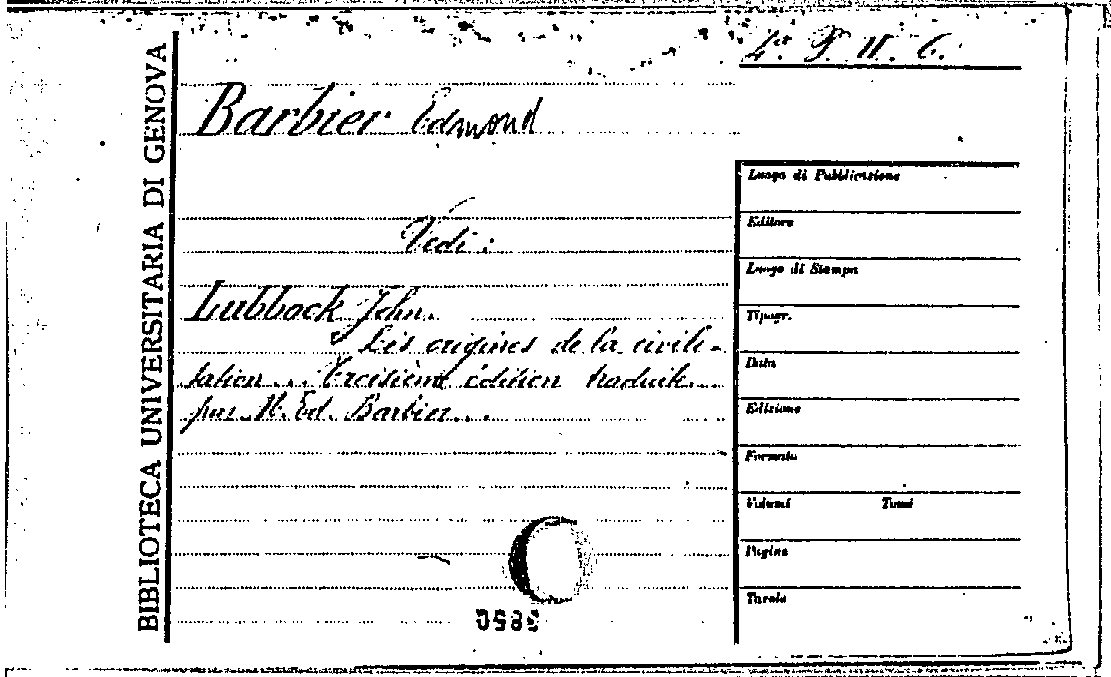 4ª. P. II. 6.
BIBLIOTECA UNIVERSITARIA DI GENOVA
Barbier Edmond
Vedi:
Lubbock John.
Les origines de la civili-
sation... Troisième édition traduite...
par M. Ed. Barbier...
Luogo di Pubblicazione
Editore
Luogo di Stampa
Tipogr.
Data
Edizione
Formato
Volumi Tomi
Pagine
Tavole